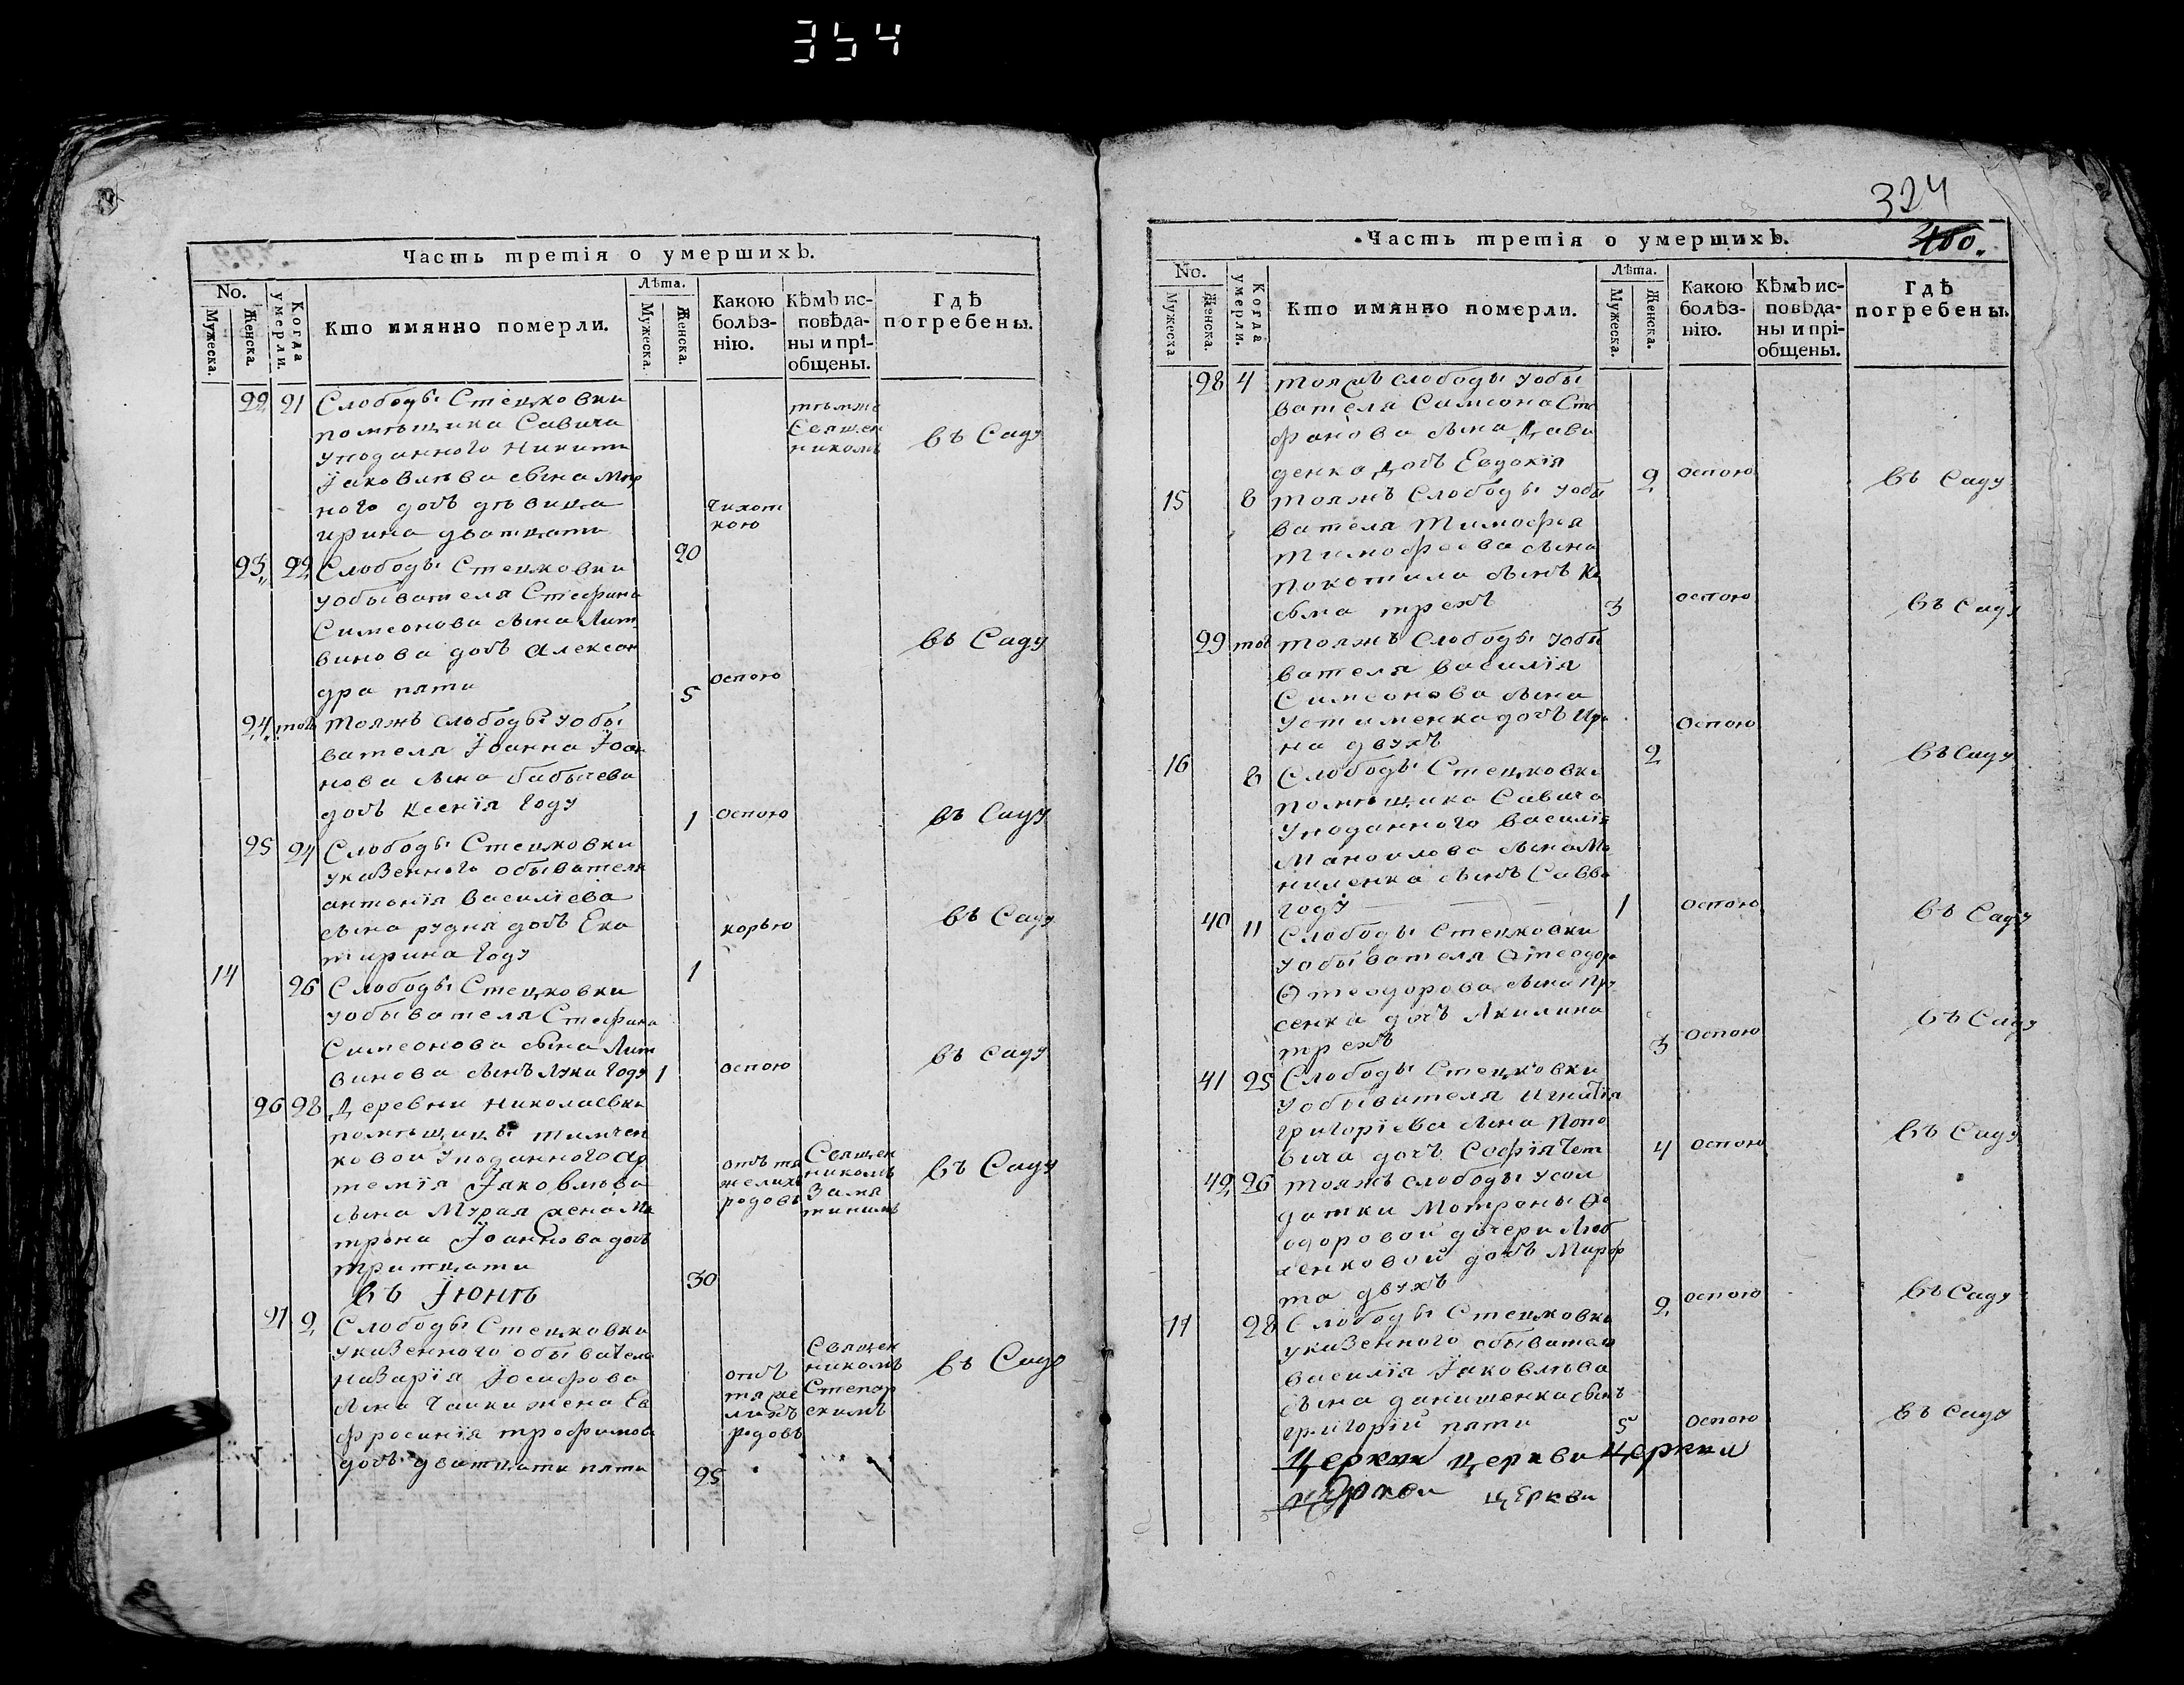 354
Часть третія о умершихъ.
No.
Мужеска.
Женска.
Когда умерли.
Кто имянно померли.
Лѣта.
Мужеска.
Женска.
Какою болѣз-
нію.
Кѣмъ ис-
повѣда-
ны и прі-
общены.
Гдѣ
погребены.
22 21 Слободы Стецковки
помѣщика Савича
уподанного Никити
Іаковлѣва сына Мир
ного дочъ дѣвица
ирина дватцати 20
чихот
кою
тѣмже
Священ
никомъ
въ Саду
23 22 Слободы Стецковки
уобывателя Стефана
Симеонова сына Лит
винова дочъ Алексан
дра пяти 5 оспою въ Саду
24 тоя Тояжъ слободы уобы
вателя Іоанна Іоан
нова сына бабычева
дочъ Ксенія году 1 оспою въ Саду
25 24 Слободы Стецковки
указенного обывателя
антонія василіева
сына рудня дочъ Ека
тирина году 1 корью въ Саду
14 26 Слободы Стецковки
уобывателя Стефана
Симеонова сына Лит
винова сынъ лука году 1 оспою въ саду
26 28 Деревни Николаевки
помѣщицы тимчен
ковой уподанного Ар
темія Іаковлѣва
сына Мурая жена Ма
трона Іоаннова дочъ
тритцати 30
отъ тя
желихъ
родовъ
Священ
никомъ
Замя
тинимъ
въ Саду
въ Іюнѣ
21 2 Слободы Стецковки
указенного обывателя
назарія Іосифова
сына Чайки жена Ев
фросинія трофимова
дочъ дватцати пяти 25
отъ
тяже
лихъ
родовъ
Священ
никомъ
Степор
скимъ
въ Саду
324
400.
Часть третія о умершихъ.
No.
Мужеска
Женска.
Когда умерли.
Кто имянно померли.
Лѣта.
Мужеска.
Женска.
Какою
болѣз-
нію.
Кѣмъ ис-
повѣда-
ны и прі-
общены.
Гдѣ
погребены.
28 4 тояжъ слободы уобы
вателя Симеона Сте
фанова сына Дави
денка дочъ Евдокія 2 оспою въ Саду
15 8 тояжъ Слободы уобы
вателя Тимофея
Тимофеева сына
Покотила сынъ Ко
сьма трехъ 3 оспою въ Саду
29 тоя тояжъ Слободы уобы
вателя василія
Симеонова сына
устименка дочъ Ири
на двухъ 2 Оспою въ Саду
16 8 Слободы Стецковки
помѣщика Савича
уподанного василія
Маноилова сына Ма
ниленка сынъ Савва
году 1 оспою въ Саду
40 11 Слободы Стецковки
уобывателя Ѳтеодора
Ѳтеодорова сына Пру
сенка дочъ Акилина
трехъ 3 Оспою въ Саду
41 25 Слободы Стецковки
уобывателя игнатія
григоріева сына Попо
вича дочъ Софія чет 4 оспою въ Саду
42 26 тояжъ слободы усол
датки Мотроны Ѳе
одоровой дочери Люб
ченковой дочъ Марф
та двухъ 2 оспою въ Саду
17 28 Слободы Стецковки
указенного обывателя
василія Іаковлѣва
сына данишенка сынъ
григорій пяти 5 Оспою въ Саду
Церкви церкви Церкви
церкви церкви